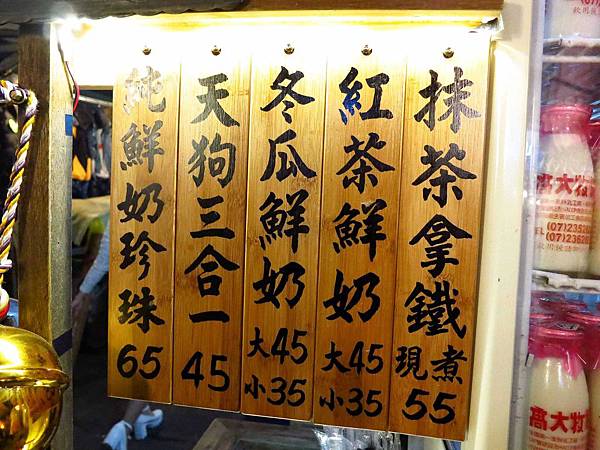 抹茶拿鐵
現煮
55
紅茶鮮奶
大45
小35
冬瓜鮮奶
大45
小35
天狗三合一
45
純鮮奶珍珠
65
高大牧
(07)2352
(07)2362
高大牧